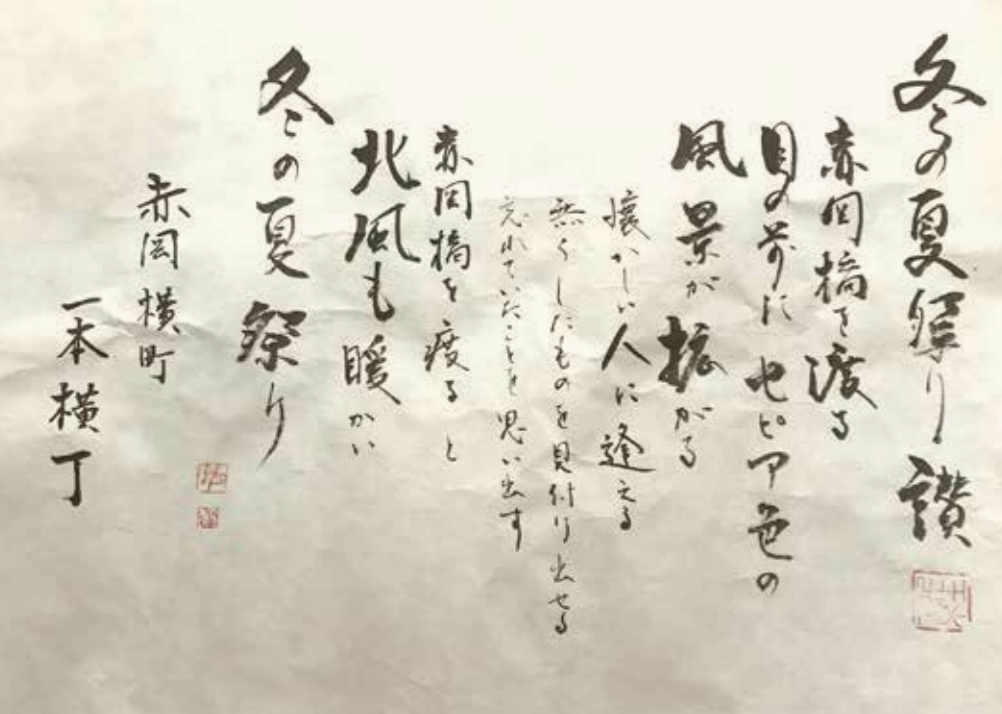 冬の夏祭り讃
赤岡橋を渡る
目の前にセピア色の
風景が拡がる
懐かしい人に逢える
無くしたものを見付け出せる
忘れていたことを思い出す
赤岡橋を渡ると
北風も暖かい
冬の夏祭り
赤岡横町
一本横丁